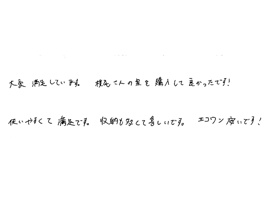 大変 満足しています。 様尾さんの家を 購入して 良かったです!
使いやすくて 満足です。 収納も多くて 喜しいです。 エコワン 良いです!